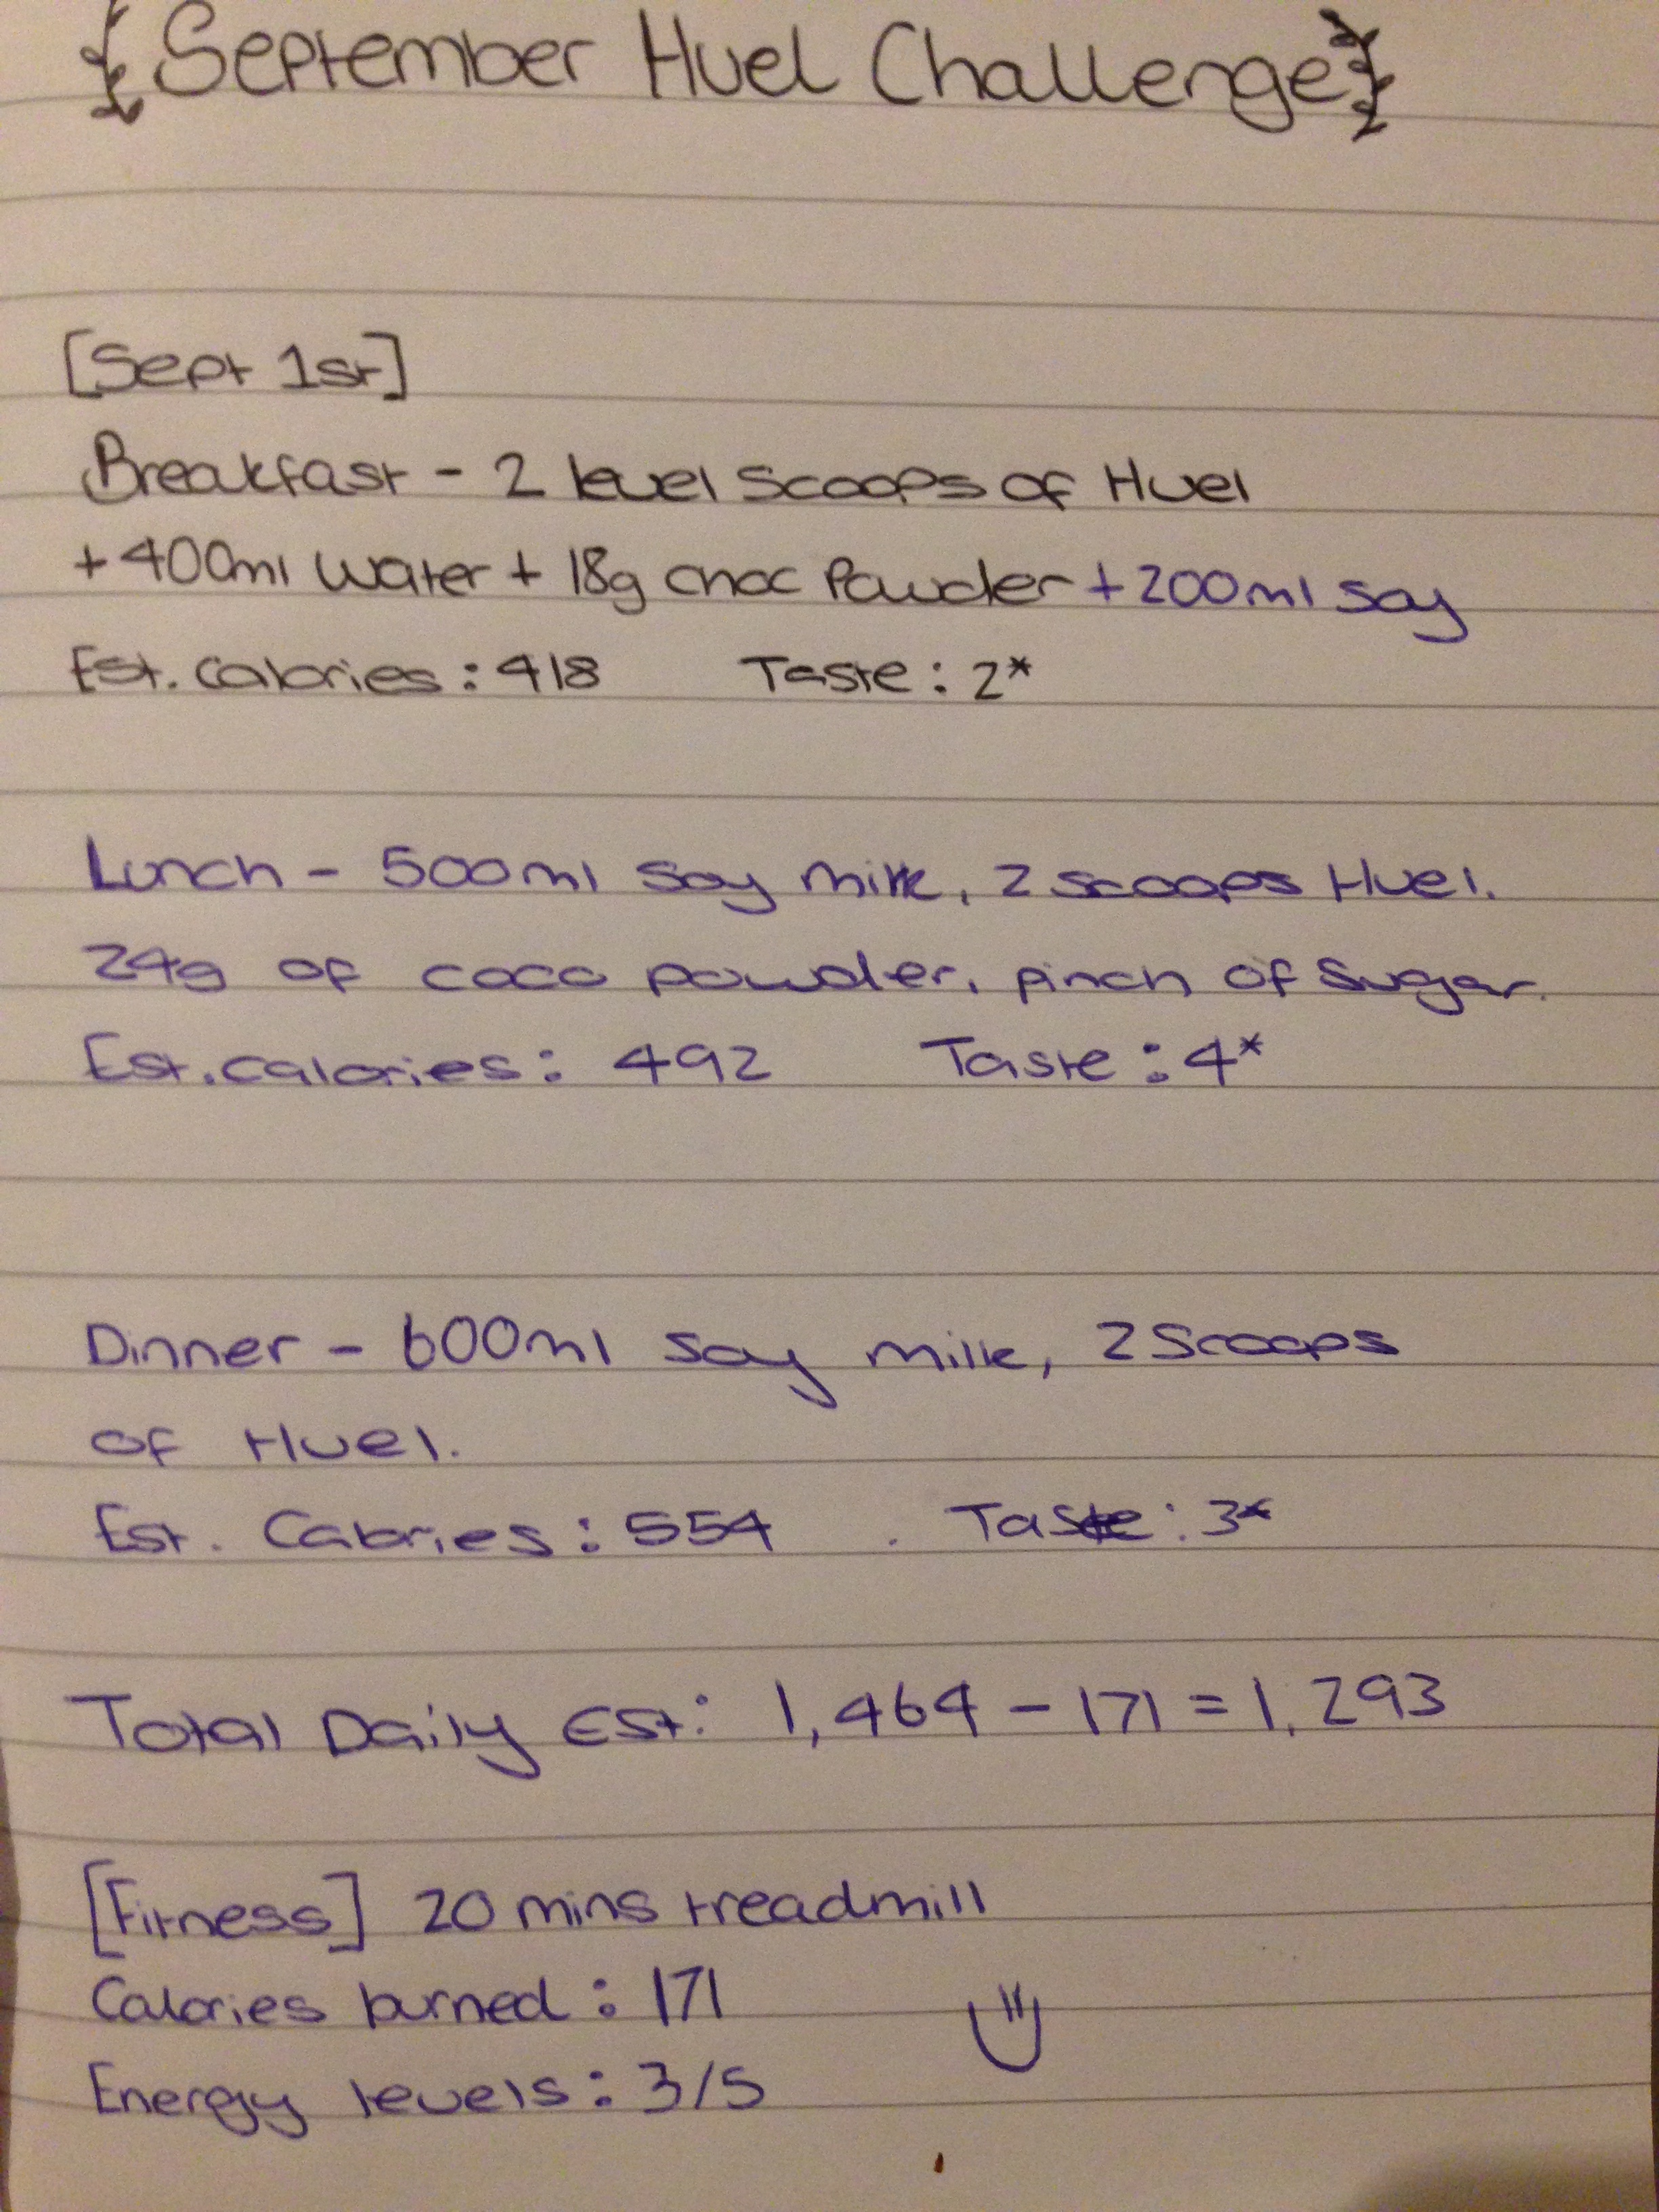 {September Huel Challenge}
[Sept 1st]
Breakfast - 2 level scoops of Huel
+ 400ml water + 18g choc Powder + 200ml soy
Est. Calories : 418 Taste : 2*
Lunch - 500ml soy milk, 2 scoops Huel.
24g of coco powder, pinch of sugar.
Est. calories : 492 Taste : 4*
Dinner - 600ml soy milk, 2 scoops
of Huel.
Est. Calories : 554 . Taste : 3*
Total Daily Est: 1,464 - 171 = 1,293
[Fitness] 20 mins treadmill
Calories burned : 171
Energy levels : 3/5